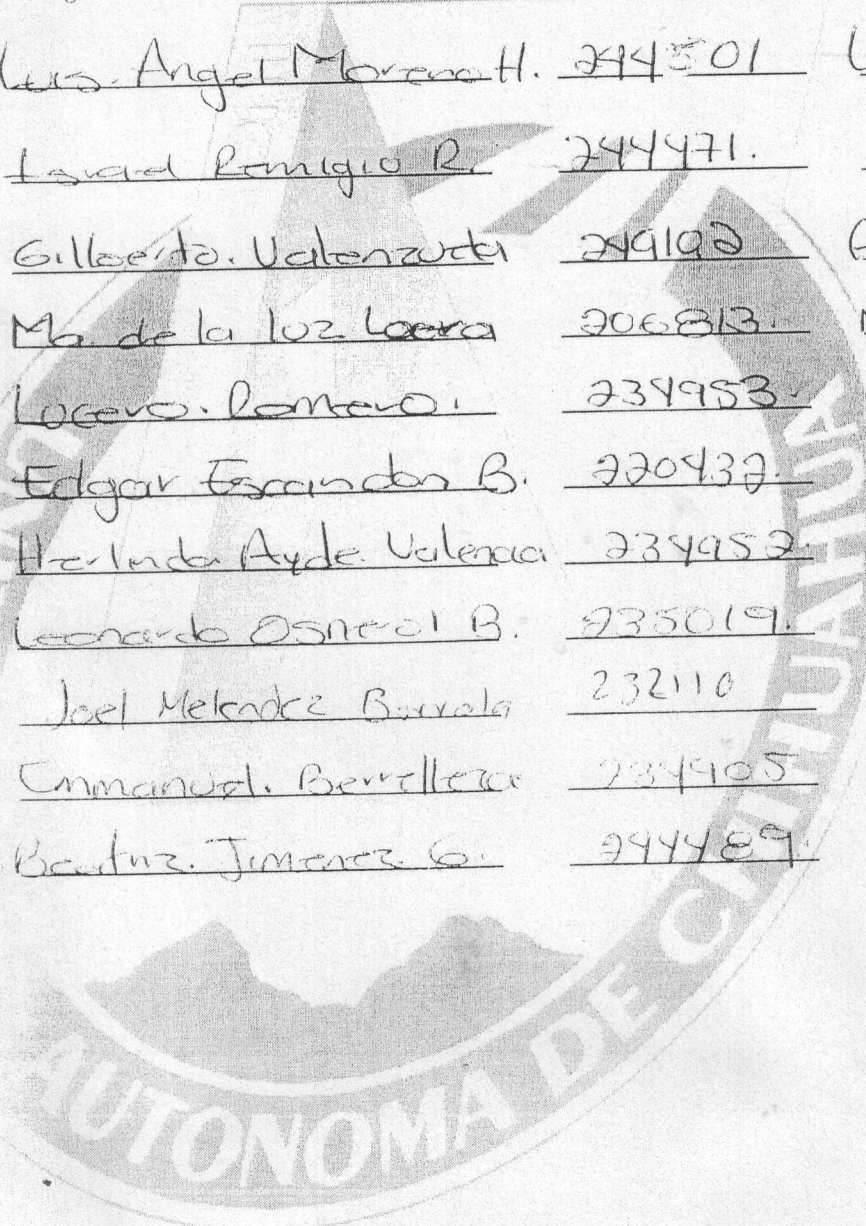 Luis. Angel Moreno H. 244501
Remigio R. 244471.
Gilberto. Valenzuela 249192
Ma. de la luz Loera 206813.
Lucero. Romero. 234953
Edgar Escandon B. 220432.
Herlinda Ayde. Valencia 234952.
Leonardo B. 235019.
Joel Melendez Burrola 232110
Emmanuel. Berrelleza 234905
Beatriz. Jimenez G. 244489.
AUTONOMA DE CHIHUAHUA